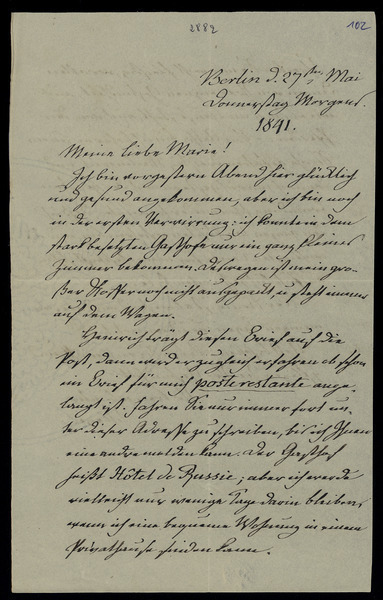 2882
102
Berlin d. 27ten Mai
Donnerstag Morgens.
1841.
Meine liebe Marie!
Ich bin vorgestern Abend hier glücklich
und gesund angekommen, aber ich bin noch
in der ersten Verwirrung: ich konnte in dem
stark besetzten Gasthofe nur ein ganz kleines
Zimmer bekommen. Deswegen ist mein gro-
ßer Koffer noch nicht ausgepackt, u steht immer
auf dem Wagen.
Heinrich trägt diesen Brief auf die
Post, dann wird er zugleich erfahren ob schon
ein Brief für mich poste restante ange-
langt ist. Fahren Sie nur immer fort un-
ter dieser Adresse zu schreiben, bis ich Ihnen
eine andre melden kann. Der Gasthof
heißt Hôtel de Russie; aber ich werde
vielleicht nur wenige Tage darin bleiben,
wenn ich eine bequeme Wohnung in einem
Privathause finden kann.